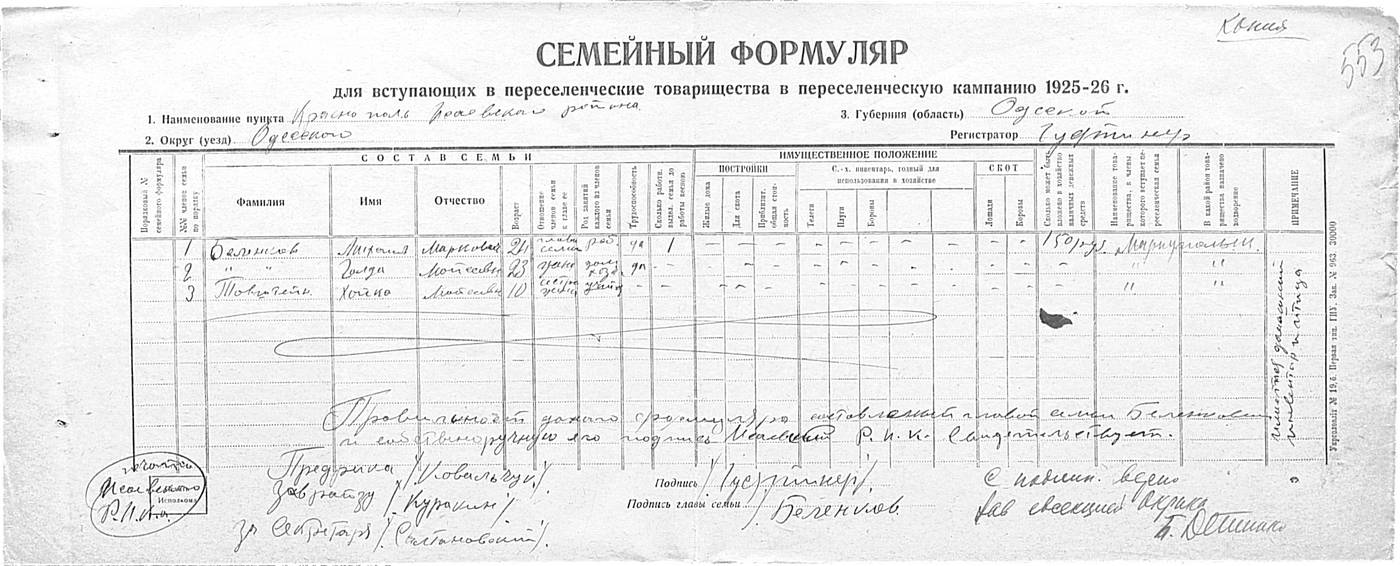 Копия
553
СЕМЕЙНЫЙ ФОРМУЛЯР
для вступающих в переселенческие товарищества в переселенческую кампанию 1925-26 г.
1. Наименование пункта Краснополь Исаевского района
3. Губерния (область) Одесской
2. Округ (уезд) Одесского
Регистратор Гуфтинер
СОСТАВ СЕМЬИ
ИМУЩЕСТВЕННОЕ ПОЛОЖЕНИЕ
Порядковый № семейного формуляра
№№ членов семьи по порядку
Фамилия
Имя
Отчество
Возраст
Отношение членов семьи к главе ее
Род занятий каждого из членов семьи
Трудоспособность
Сколько работн. вызвал. семья до работы весною
ПОСТРОЙКИ
Жилые дома
Для скота
Приблизит. общая стоимость
С.-х. инвентарь, годный для использования в хозяйстве
Телеги
Плуги
Бороны
СКОТ
Лошади
Коровы
Сколько может быть вложено в хозяйство наличных денежных средств
Наименование товарищества, в члены которого вступает переселенческая семья
В какой район товарищества назначено водворение
ПРИМЕЧАНИЕ
1 Беленков Михаил Маркович 24 глава семьи раб. да 1 – – – – – – – – 150 руб. Мариупольск.
2 " " Голда Мойсеевн 23 жена дом. хоз. да – – – – – – – – – – "
3 Хайка Мойсеевн 10 сестра жены – – – – – – – – – – " "
имеется домашний инвентарь и птица
Правильность даного формуляра составленый главой семьи Беленковым
и собственоручную его подпись Исаевский Р.И.К. Свидетельствует.
печать
Исаевского
Исполком
Р.И.К.а
Предрика /Ковальчук/
Заврайзу /Куракин/
За Секретаря
Подпись /Гуфтинер/
Подпись главы семьи /Беленков
С подлин. верно
Зав евсекцией Окрика
Укрглавлит № 19,б. Первая тип. ГПУ. Зак. № 963. 30000